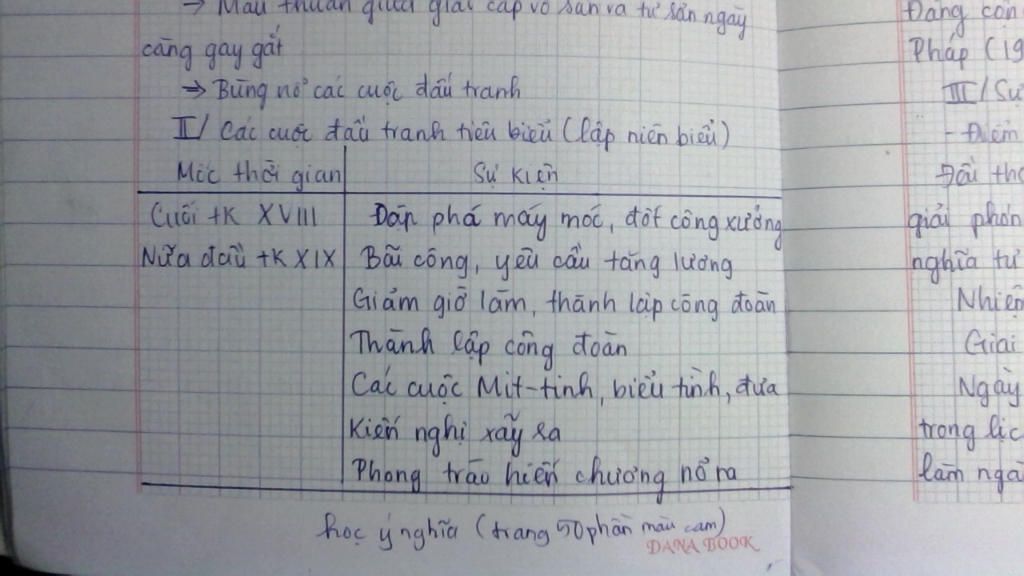 → Mâu thuẫn giữa giai cấp vô sản và tư sản ngày
càng gay gắt
→ Bùng nổ các cuộc đấu tranh
II/ Các cuộc đấu tranh tiêu biểu (lập niên biểu)
Mốc thời gian Sự kiện
Cuối tK XVIII Đập phá máy móc, đốt công xưởng
Nữa đầu tK XIX Bãi công, yêu cầu tăng lương
Giảm giờ làm, thành lập công đoàn
Thành lập công đoàn
Các cuộc Mit-tinh, biểu tình, đưa
Kiến nghị xãy ra
Phong trào hiến chương nổ ra
học ý nghĩa (trang 50 phần màu cam)
DANA BOOK
Pháp (19
III/ Sự
- Điểm
giải phón
nghĩa tư
Nhiệ
Giai
Ngày
trong lịc
làm ngà